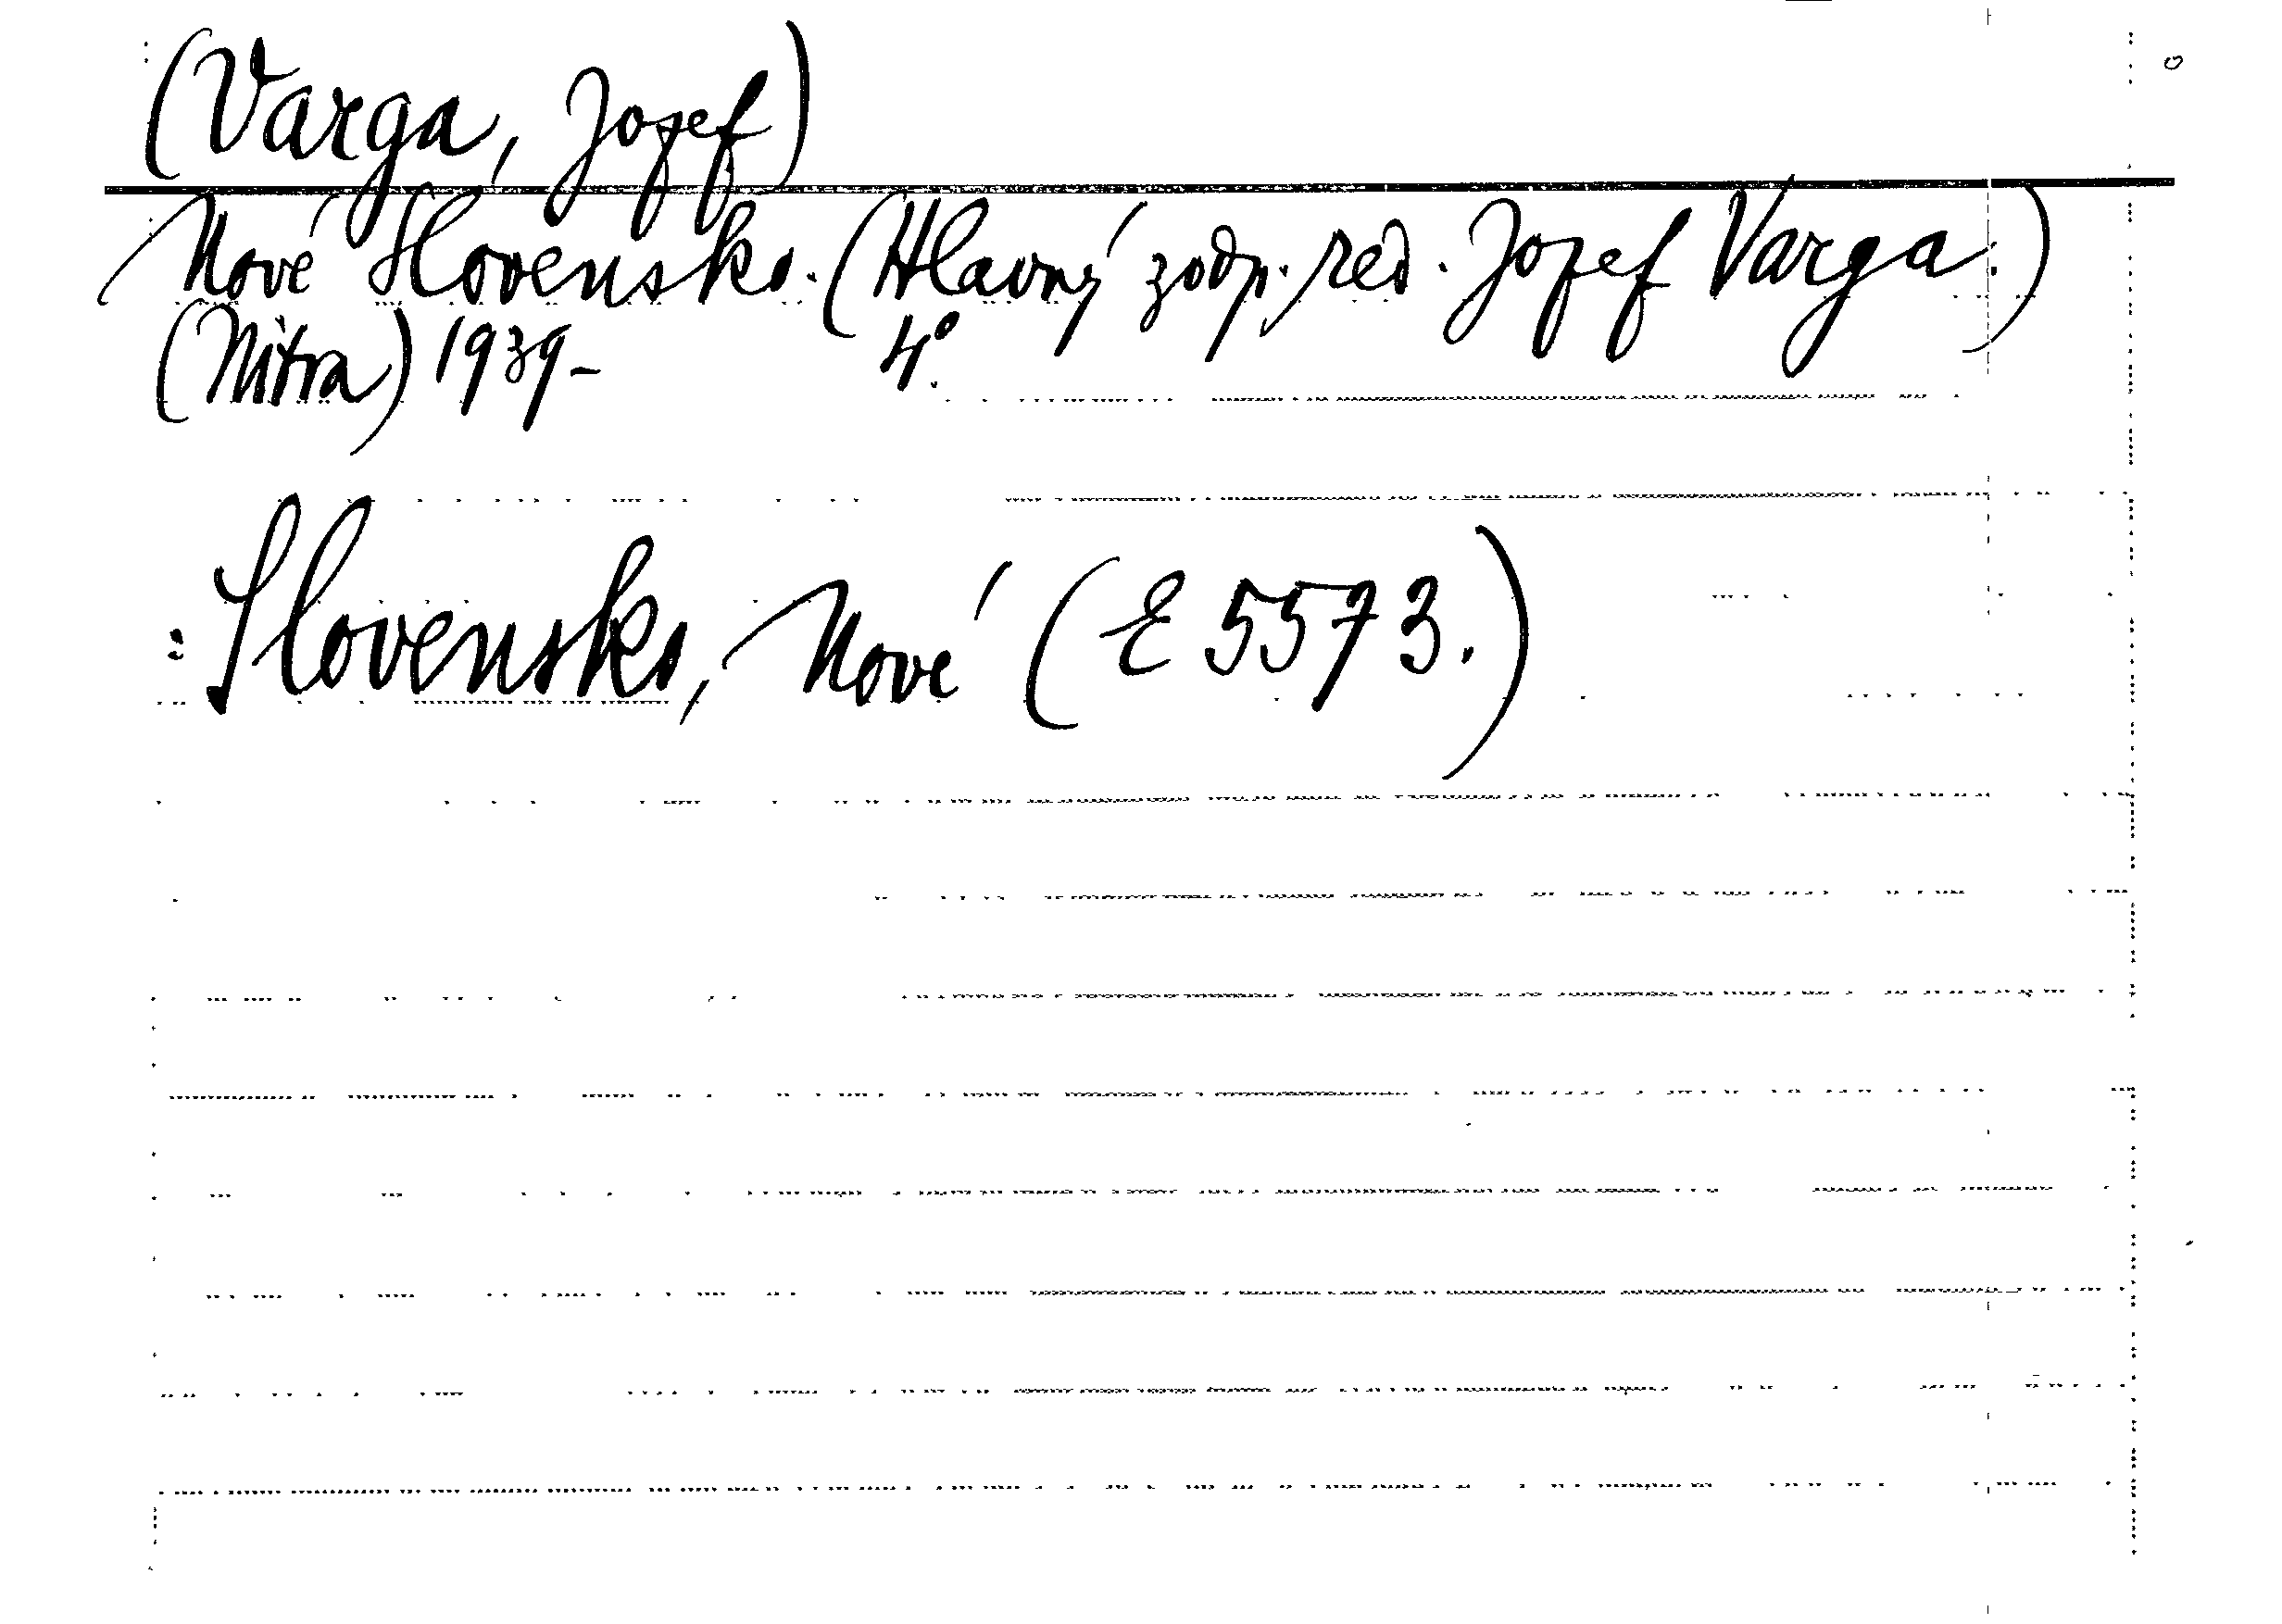 (Varga, Jozef)
Nové Slovensko. (Hlavný zodp. red. Jozef Varga.)
(Nitra) 1939- 4°.
: Slovensko, Nové (E 5573.)